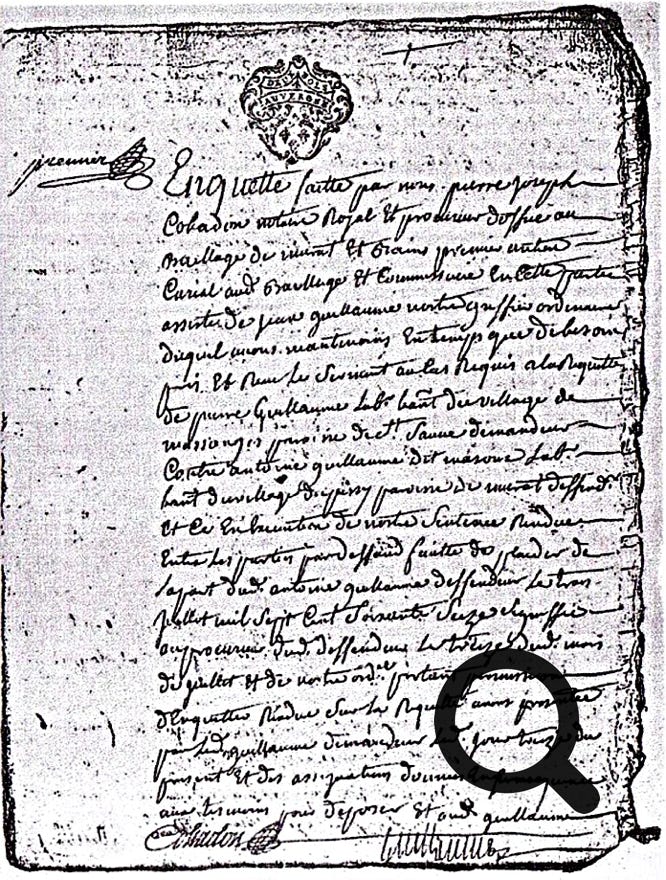 premier
Enquette faitte par nous pierre joseph
Cohadon notaire Royal Et procureur doffice au
Baillage de murat Et
Curial aud. Baillage Et Commissaire En Cette partie
assisté de jean guillaume nostre greffier ordinaire
duquel avons Entemps que de besoin
pris Et Recu Le Serment au Cas Requis a la Requette
de pierre Guillaume Labr. hant. du village de
paroisse de St. Sauve demandeur
Contre antoine guillaume dit Labr.
hant. du village paroisse de murat deffendr.
Et Ce En Execution de nostre Sentence Rendue
Entre Les parties par deffaud faitte de plaider de
la part dud. antoine guillaume deffendeur Le trois
juillet mil Sept Cent Soixante Seize
au procureur dud. deffendeur Le treize dud. mois
de juillet Et de nostre ordce. portant permission
dEnquetter Rendue Sur La Requette a nous presentée
par Led. guillaume demandeur Led. jour treize du
present Et des assignations données En Consequence
aux temoins pour deposer Et aud. guillaume
Cohadon guillaume